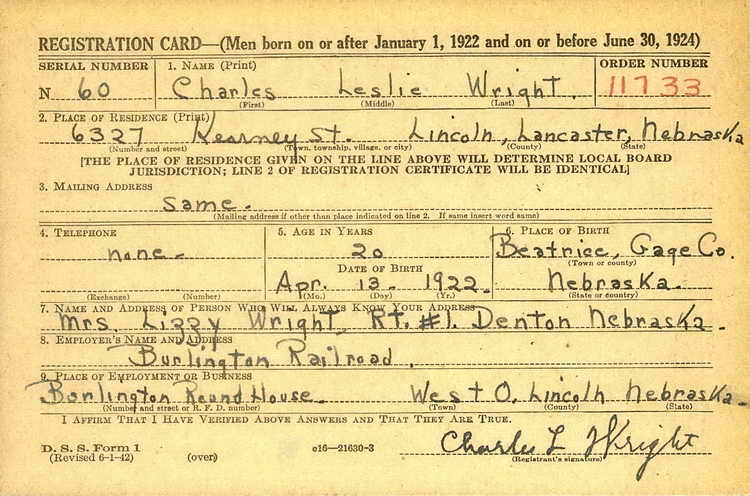 REGISTRATION CARD—(Men born on or after January 1, 1922 and on or before June 30, 1924)
SERIAL NUMBER 1. NAME (Print) ORDER NUMBER
N 60 Charles Leslie Wright. 11733
(First) (Middle) (Last)
2. PLACE OF RESIDENCE (Print)
6327 Kearney St. Lincoln, Lancaster, Nebraska
(Number and street) (Town, township, village, or city) (County) (State)
[THE PLACE OF RESIDENCE GIVEN ON THE LINE ABOVE WILL DETERMINE LOCAL BOARD
JURISDICTION; LINE 2 OF REGISTRATION CERTIFICATE WILL BE IDENTICAL]
3. MAILING ADDRESS
Same.
(Mailing address if other than place indicated on line 2. If same insert word same)
4. TELEPHONE 5. AGE IN YEARS 6. PLACE OF BIRTH
none. 20 Beatrice, Gage Co.
(Town or county)
DATE OF BIRTH
Apr. 13. 1922. Nebraska.
(Exchange) (Number) (Mo.) (Day) (Yr.) (State or country)
7. NAME AND ADDRESS OF PERSON WHO WILL ALWAYS KNOW YOUR ADDRESS
Mrs. Lizzy Wright Rt. #1. Denton Nebraska.
8. EMPLOYER'S NAME AND ADDRESS
Burlington Railroad.
9. PLACE OF EMPLOYMENT OR BUSINESS
Burlington Round House. West O, Lincoln Nebraska.
(Number and street or R. F. D. number) (Town) (County) (State)
I AFFIRM THAT I HAVE VERIFIED ABOVE ANSWERS AND THAT THEY ARE TRUE.
D. S. S. Form 1
(Revised 6-1-42) (over) c16—21630-3 Charles L Wright
(Registrant's signature)